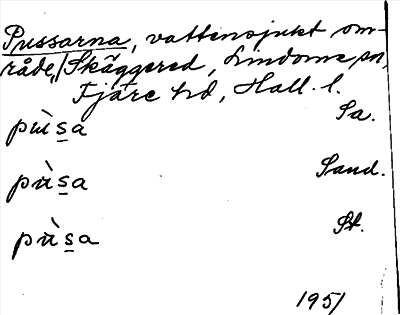 Pussarna, vattensjukt om-
råde, / Skäggered, Lindome sn,
Fjäre hd, Hall. l.
Sa.
pùs̲a
Sand.
pùs̲a
St.
pùs̲a
1951